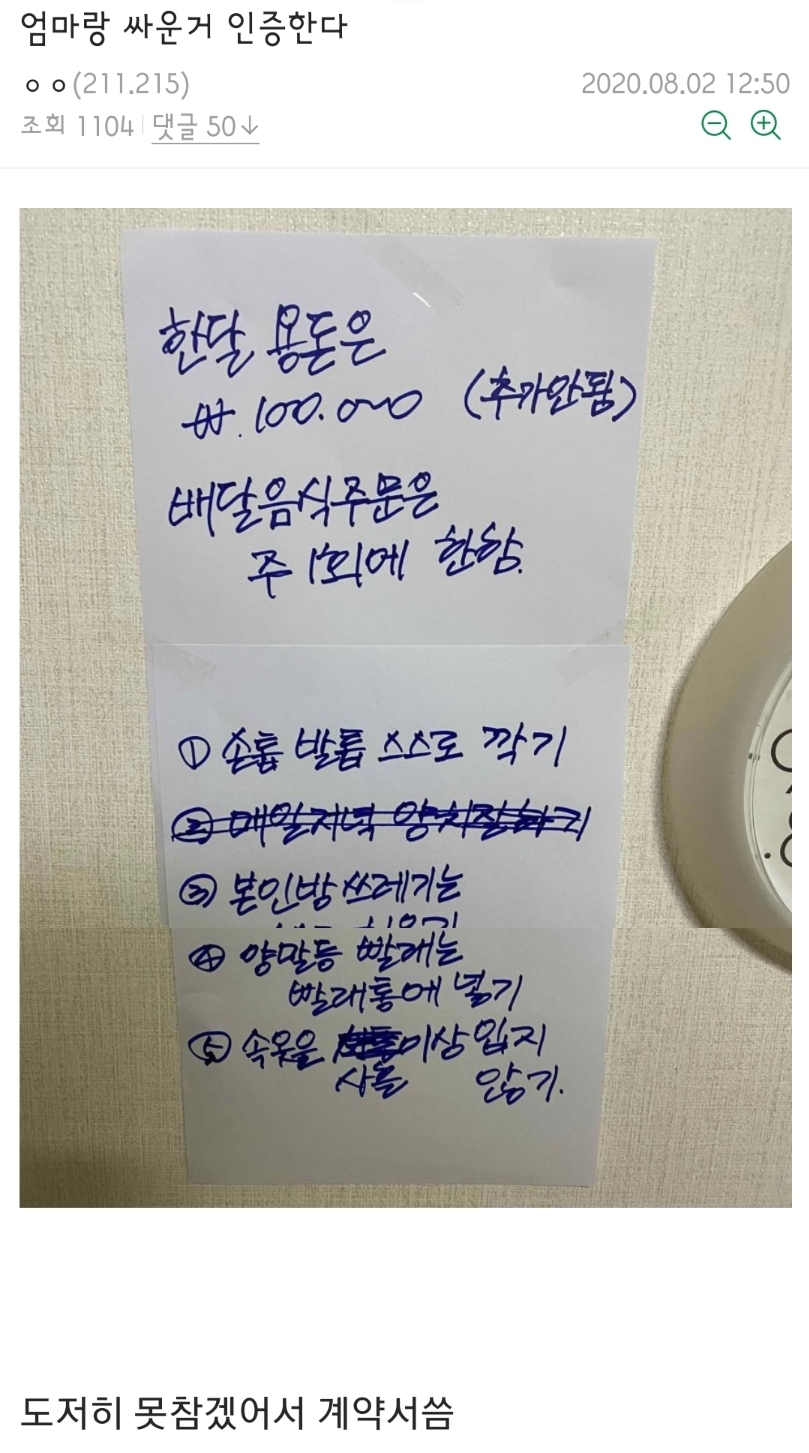 엄마랑 싸운거 인증한다
ㅇㅇ(211.215)
2020.08.02 12:50
조회 1104
댓글 50↓
한달 용돈은
₩.100.000 (추가안됨)
배달음식주문은
주 1회에 한함.
① 손톱 발톱 스스로 깍기
② 매일저녁 양치질하기
③ 본인방 쓰레기는
④ 양말등 빨래는
빨래통에 넣기
⑤ 속옷을 이상 입지
사흘 않기.
도저히 못참겠어서 계약서씀